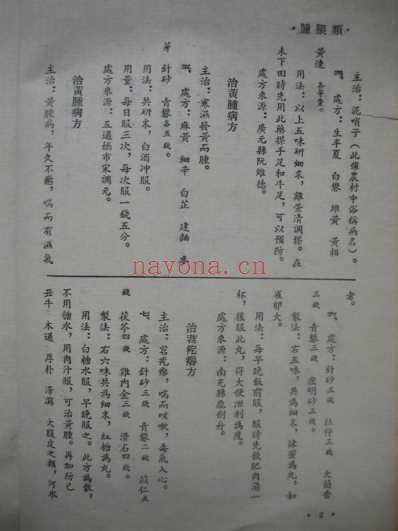 ·腫脹類·
主治：泥哨子（此係農村中俗稱病名）。
處方：生半夏 白礬 雄黃 黃柏
黃連 各等量。
用法：以上五味研細末，雞蛋清調搽。在
未下田時先用此藥搽手足和牛足，可以預防。
處方來源：廣元縣阮維德。
治黃腫病方
主治：寒濕發黃而腫。
處方：麻黃 細辛 白芷 建麯 麥
芽 針砂 青礬各五錢。
用法：共研末，白酒沖服。
用量：每日服三次，每次服一錢五分。
處方來源：五通橋市宋調元。
治黃腫病方
主治：黃腫病，年久不癒，喘而有濕氣
者。
處方：針砂三錢 杜仲三錢 大茴香
三錢 青礬三錢 砂三錢。
製法：右五味，共為細末，煉蜜為丸，如
雀卵大。
用法：每早晚飯前服，服時先飲肥肉湯一
杯，後服此丸，得大便泄利為度。
處方來源：南充縣
治黃疸癆方
主治：喘而咳嗽，毒氣入心。
處方：針砂三錢 青礬二錢 苡仁五
錢 茯苓四錢 雞內金三錢 滑石四錢。
製法：右六味共為細末，紅糖為丸。
用法：白糖水服，早晚服之。此方為散，
不用糖水，用肉汁服，可治黃腫。再加
丑牛 木通 厚朴 澤瀉 大腹皮之類，河水
·2·
nayona.cn